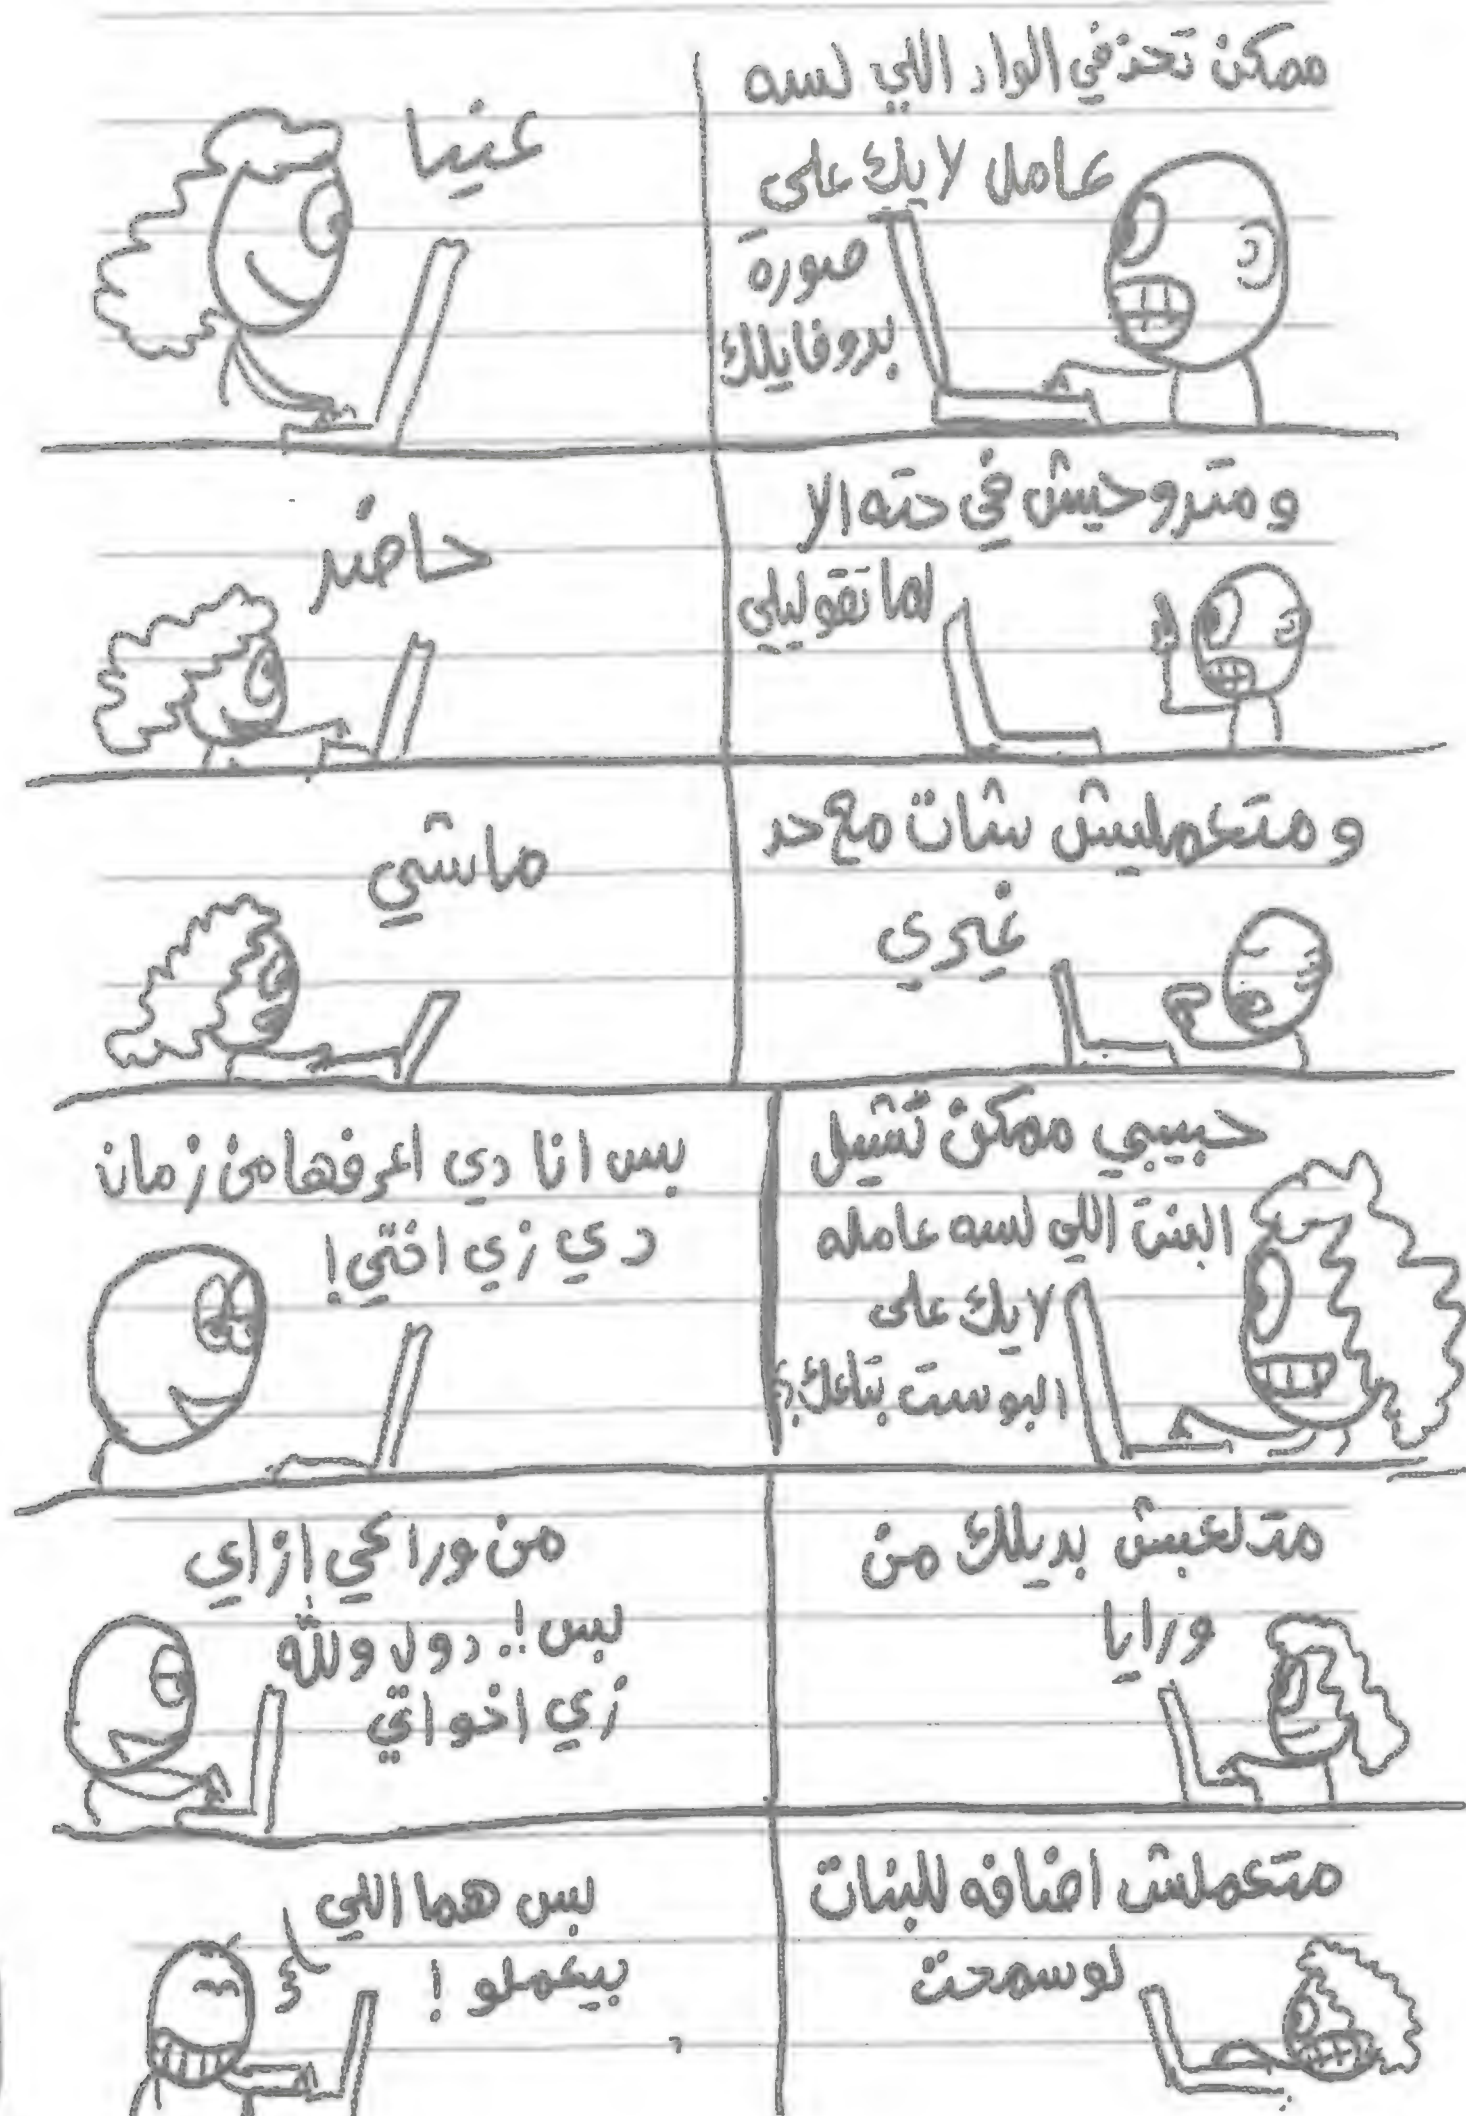 ممكن تحذفي الواد اللي لسه
عامل لايك على
صورة
بروفايلك
عنيا
ومتروحيش في حته الا
لما تقوليلي
حاضر
ومتعمليش شات مع حد
غيري
ماشي
حبيبي ممكن تشيل
البنت اللي لسه عامله
لايك على
البوست بتاعك؟
بس انا دي اعرفها من زمان
دي زي اختي!
متلعبش بديلك من
ورايا
من وراكي إزاي
بس!. دول والله
زي اخواتي
متعملش اضافه للبنات
لو سمحت
بس هما اللي
بيعملو!